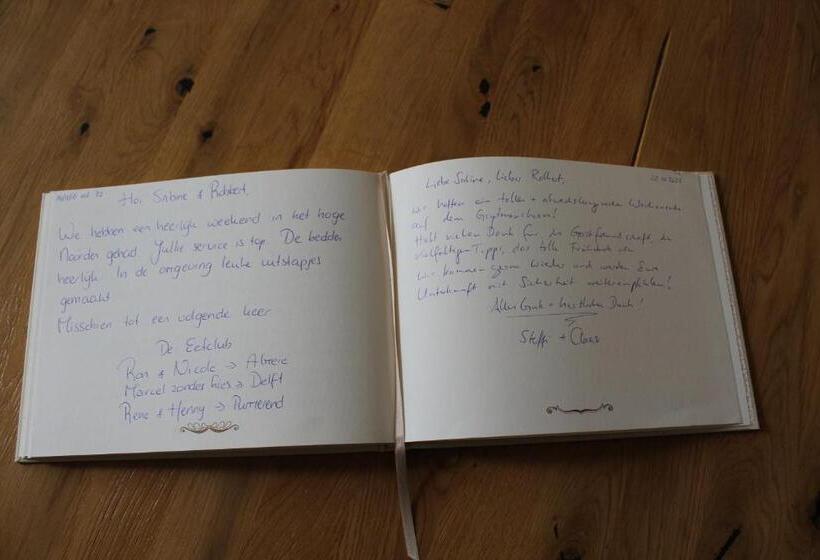 Hoi Sabine & Robbert,
We hebben een heerlijk weekend in het hoge
Noorden gehad. Jullie service is top. De bedden
heerlijk. In de omgeving leuke uitstapjes
gemaakt.
Misschien tot een volgende keer
De Eetclub
Ron & Nicole → Almere
Marcel zonder Kees → Delft
Rene & Henny → Purmerend
Liebe Sabine, lieber Robbert,
wir hatten ein tolles + abwechslungsreiches Wochenende
auf dem
Habt vielen Dank für die Gastfreundschaft, die
vielfältigen Tipps, das tolle Frühstück
Wir kommen gerne wieder und werden Eure
Unterkunft mit Sicherheit weiterempfehlen!
Alles Gute + herzlichen Dank!
Steffi + Claus